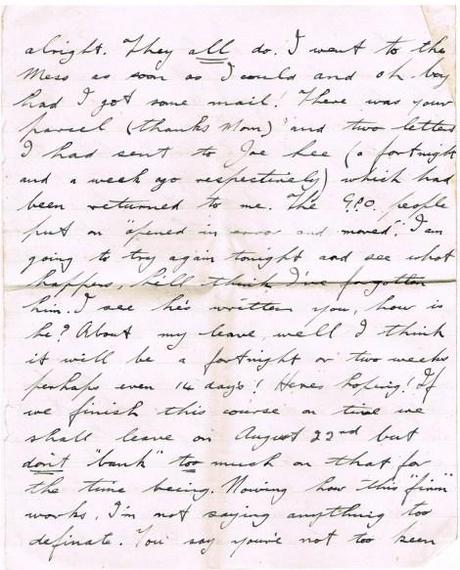 alright. They all do. I went to the
Mess as soon as I could and oh boy
had I got some mail! There was your
parcel (thanks Mom) and two letters
I had sent to Joe Lee (a fortnight
and a week ago respectively) which had
been returned to me. The G.P.O. people
put on "opened in error and moved". I am
going to try again tonight and see what
happens, he'll think I've forgotten
him. I see he's written you, how is
he? About my leave, well I think
it will be a fortnight or two weeks
perhaps even 14 days! Heres hoping! If
we finish this course on time we
shall leave on August 22nd but
don't "bank" too much on that for
the time being. Nowing how this "firm"
works, I'm not saying anything too
definate. You say you're not too keen